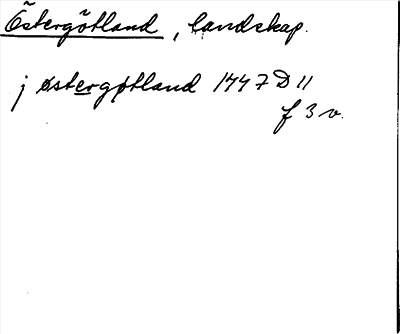 Östergötland, landskap.
j østergøtland 1447 D 11
f 3 v.